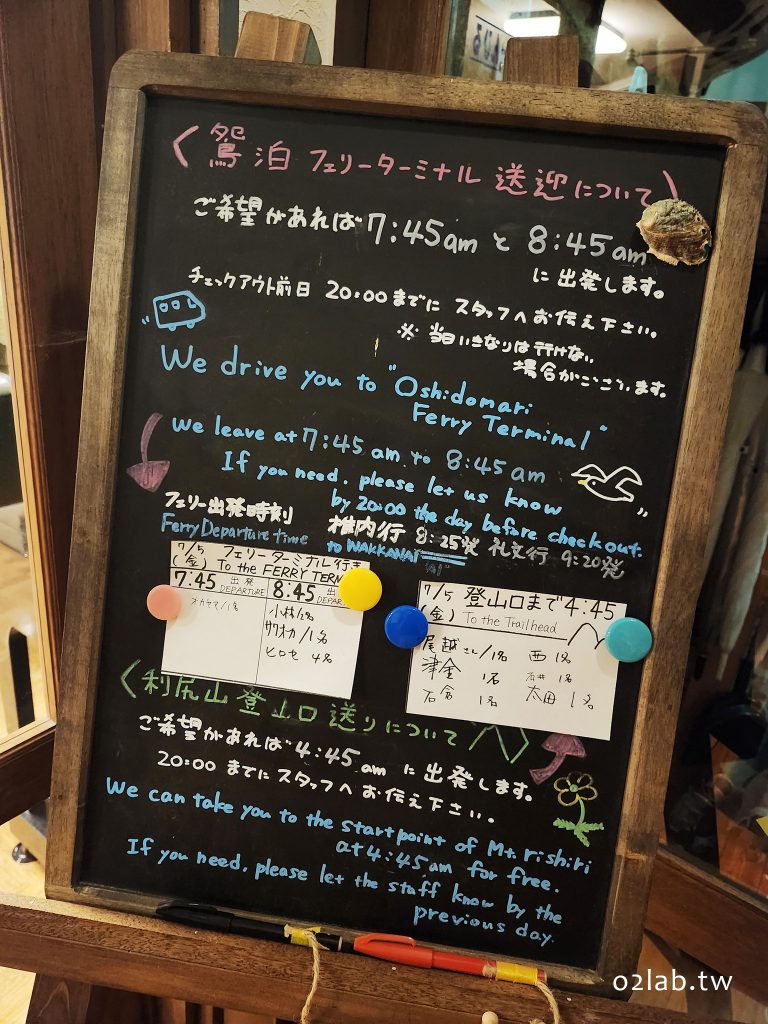 〈鴛泊 フェリーターミナル 送迎について〉
ご希望があれば 7:45am と 8:45am
に出発します。
チェックアウト前日 20:00までに スタッフへお伝え下さい。
※ 当日いきなりは行けない
場合がございます。
We drive you to "Oshidomari
Ferry Terminal"
We leave at 7:45 am to 8:45 am
If you need, please let us know
by 20:00 the day before checkout.
フェリー出発時刻
Ferry Departure time
稚内行 8:25発 礼文行 9:20発
to WAKKANAI
7/5 (金) フェリーターミナル行き
To the FERRY TERM
7:45 出発 DEPARTURE
8:45 出 DEPAR
オカヤマ/1名
小林/2名
サワオカ/1名
ヒロセ 4名
7/5 (金) 登山口まで 4:45
To the Trailhead
尾越さん/1名 西 1名
津金 1名 石井 1名
石倉 1名 太田 1名
〈利尻山登山口送りについて〉
ご希望があれば 4:45 am に出発します。
20:00 までにスタッフへ お伝え下さい。
We can take you to the start point of Mt. rishiri
at 4:45am for free.
If you need, please let the staff know by the
previous day.
o2lab.tw